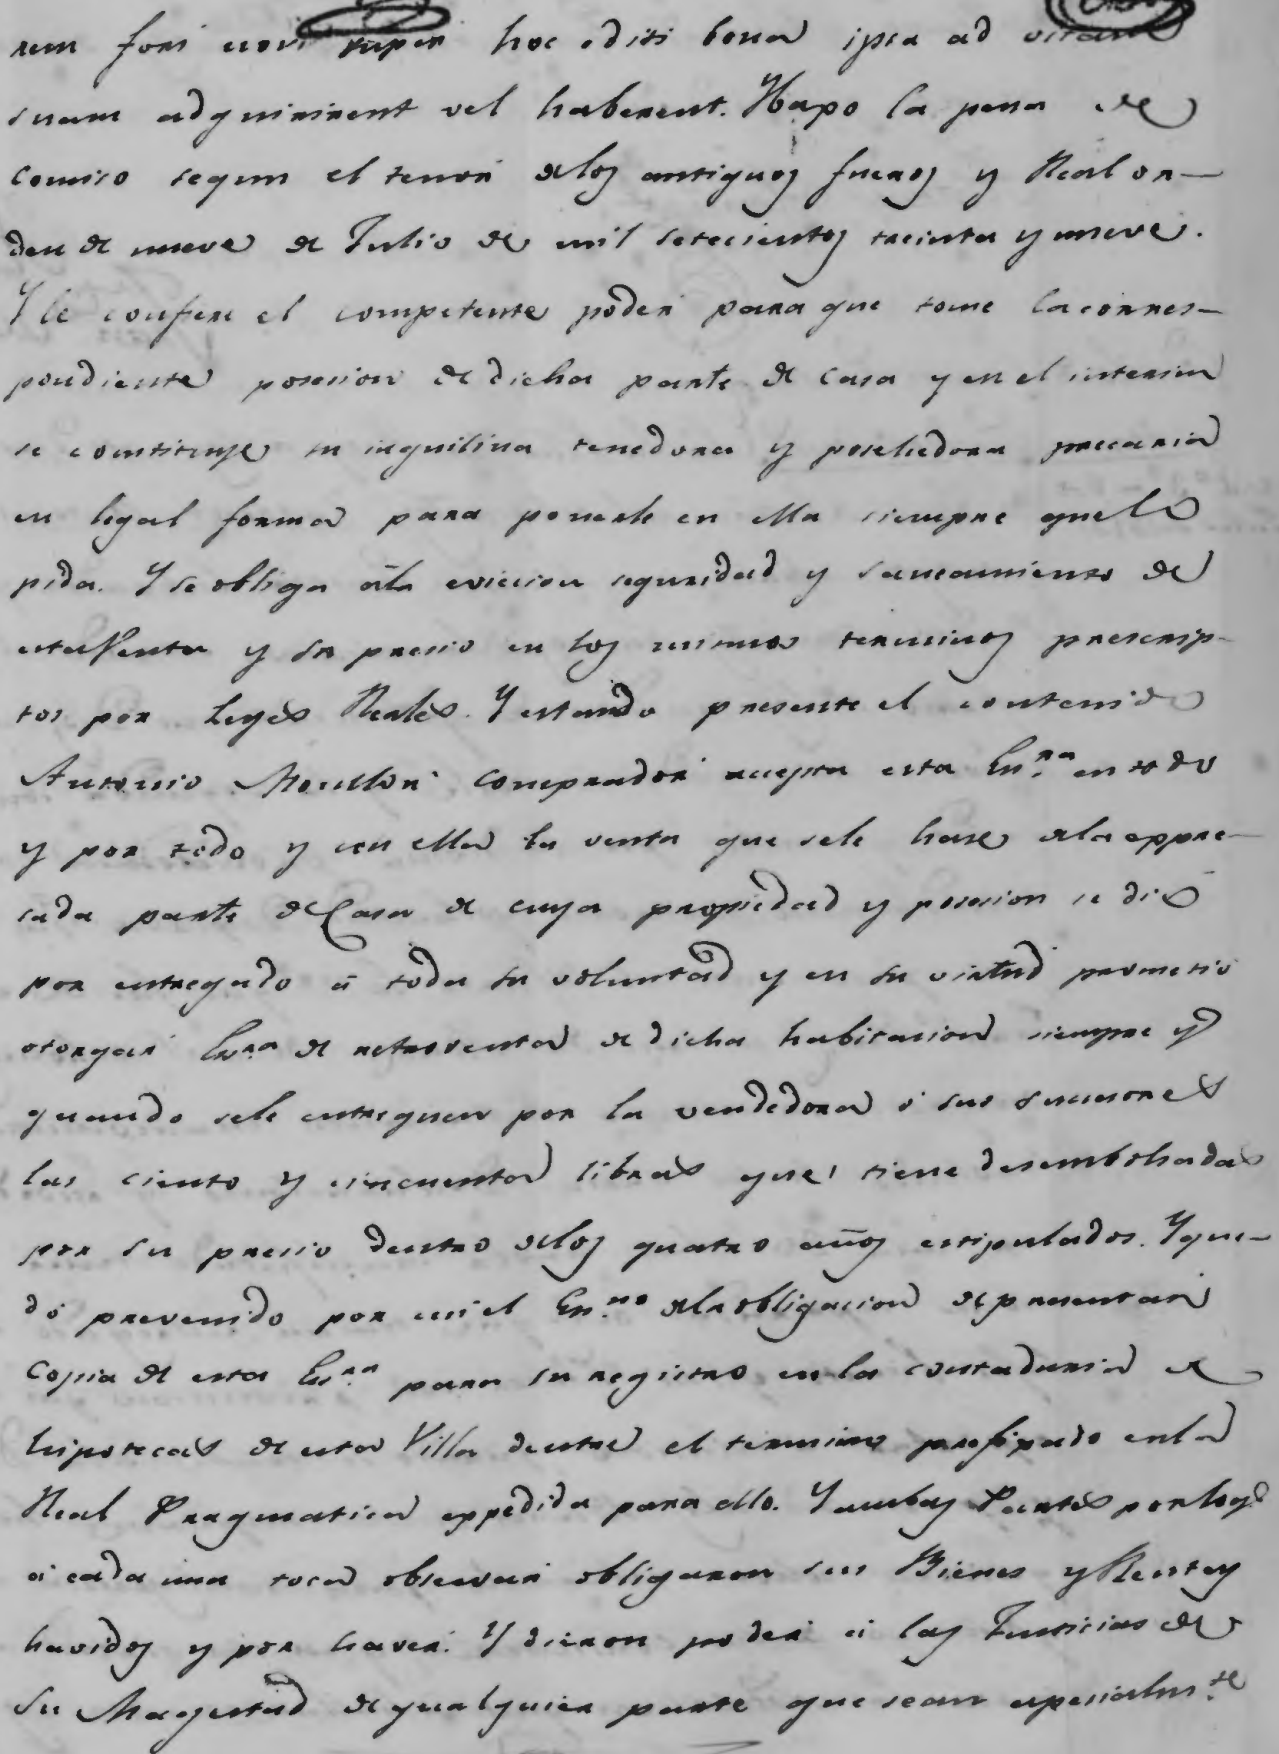 rem fori novi super hoc editi bona ipsa ad vitam
suam adquirirent vel haberent. Y bajo la pena de
comiso segun el tenor de los antiguos fueros y Real or-
den de nueve de Julio de mil setecientos treinta y nueve.
Y le confiere el competente poder para que tome la corres-
pondiente posesion de dicha parte de casa y en el interim
se constituye su inquilina tenedora y posehedora precaria
en legal forma para ponerle en ella siempre que lo
pida. Y se obliga á la eviccion seguridad y saneamiento de
esta Venta y su precio en los mismos terminos prescrip-
tos por Leyes Reales. Y estando presente el contenido
Antonio Moullor comprador accepta esta Es.ra en todo
y por todo y con ella la venta que sele hase dela expre-
sada parte de Casa de cuya propiedad y posesion se dió
por entregado á toda su voluntad y en su virtud prometió
otorgar Es.ra de retroventa de dicha habitacion siempre y
quando sele entreguen por la vendedora ó sus sucesores
las ciento y cincuenta libras que tiene desembolsadas
por su precio dentro delos quatro años estipulados. Y que-
dó prevenido por mi el Es.no dela obligacion de presentar
copia de esta Es.ra para su registro en la contaduria de
hipotecas de esta Villa dentro el termino prefixado en la
Real Pragmatica expedida para ello. Y ambas Partes por loq.e
á cada una toca observar obligaron sus Bienes y Rentas
havidos y por haver. Y dieron poder á las Justicias de
Su Magestad de qualquier parte que sean especialm.te